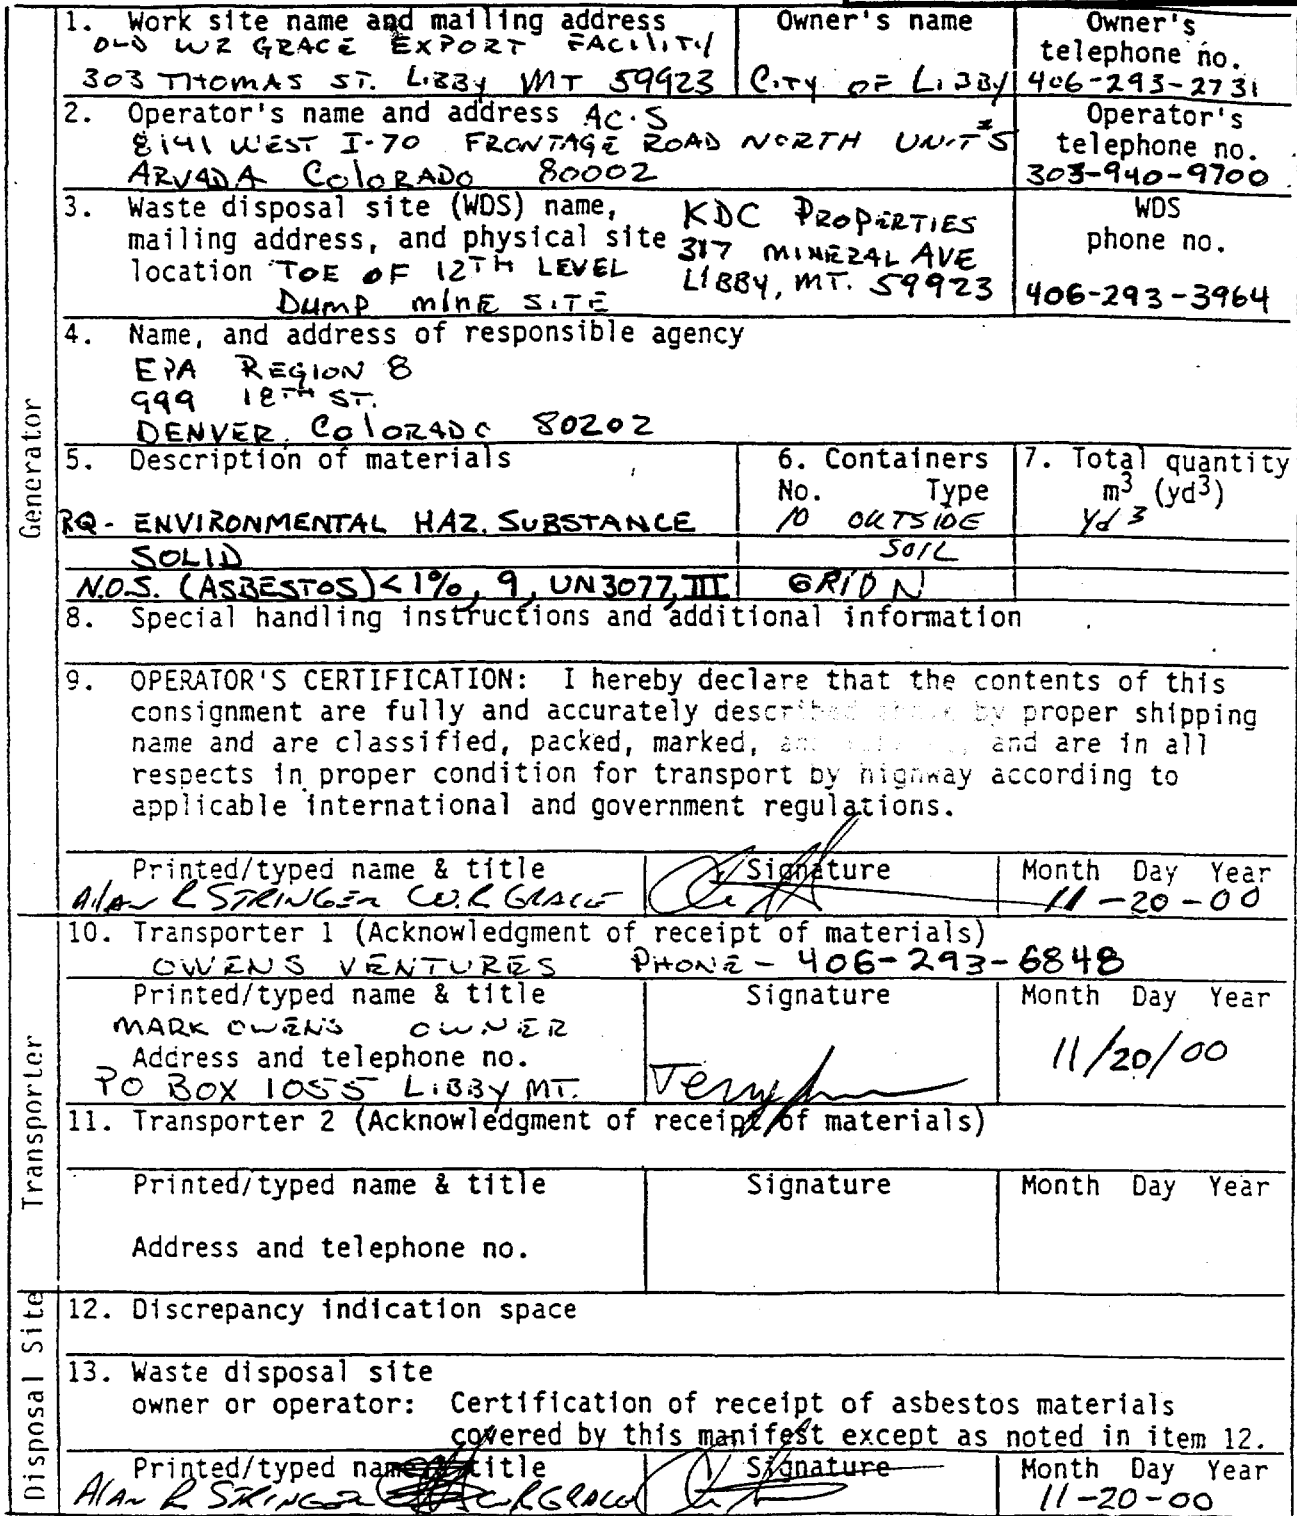 1. Work site name and mailing address
OLD WR GRACE EXPORT FACILITY
303 THOMAS ST. LIBBY MT 59923
Owner's name
CITY OF LIBBY
Owner's
telephone no.
406-293-2731
2. Operator's name and address AC·S
8141 WEST I-70 FRONTAGE ROAD NORTH UNIT #5
ARVADA COLORADO 80002
Operator's
telephone no.
303-940-9700
3. Waste disposal site (WDS) name,
mailing address, and physical site
location TOE OF 12TH LEVEL
DUMP MINE SITE
KDC PROPERTIES
317 MINERAL AVE
LIBBY, MT. 59923
WDS
phone no.
406-293-3964
Generator
4. Name, and address of responsible agency
EPA REGION 8
999 18TH ST.
DENVER, COLORADO 80202
5. Description of materials
RQ- ENVIRONMENTAL HAZ. SUBSTANCE
SOLID
N.O.S. (ASBESTOS) <1%, 9, UN3077, III
6. Containers
No. Type
10 OUTSIDE
SOIL
GRID N
7. Total quantity
m3 (yd3)
Yd 3
8. Special handling instructions and additional information
9. OPERATOR'S CERTIFICATION: I hereby declare that the contents of this
consignment are fully and accurately described above by proper shipping
name and are classified, packed, marked, and and are in all
respects in proper condition for transport by highway according to
applicable international and government regulations.
Printed/typed name & title
Alan R STRINGER W.R GRACE
Signature
Month Day Year
11-20-00
Transporter
10. Transporter 1 (Acknowledgment of receipt of materials)
OWENS VENTURES PHONE - 406-293-6848
Printed/typed name & title
MARK OWENS OWNER
Address and telephone no.
PO BOX 1055 LIBBY MT.
Signature
Terry
Month Day Year
11/20/00
11. Transporter 2 (Acknowledgment of receipt of materials)
Printed/typed name & title
Address and telephone no.
Signature
Month Day Year
Disposal Site
12. Discrepancy indication space
13. Waste disposal site
owner or operator: Certification of receipt of asbestos materials
covered by this manifest except as noted in item 12.
Printed/typed name & title
Alan R STRINGER W R GRACE
Signature
Month Day Year
11-20-00